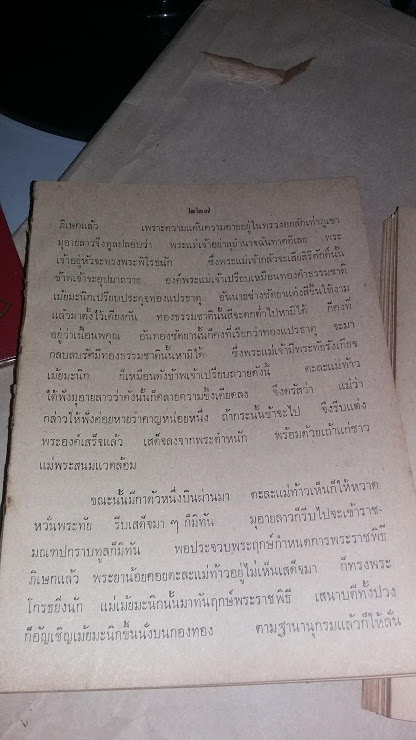 ๒๒๗
ภิเษกแล้ว เพราะความแค้นความอายอยู่ในทรวงอกลักเท่าภูเขา
มุอายลาวจึงทูลปลอบว่า พระแม่เจ้าอย่าลุอำนาจฉันทาคติเลย พระ
เจ้าอยู่หัวจะทรงพระพิโรธนัก ซึ่งพระแม่เจ้ากลัวจะเสียสิริศักดิ์นั้น
ข้าพเจ้าจะอุปมาถวาย องค์พระแม่เจ้าเปรียบเหมือนทองคำธรรมชาติ
เม้ยมะนิกเปรียบประดุจทองแปรธาตุ อันนายช่างซัดยาแต่งสีขึ้นให้งาม
แล้วมาตั้งไว้เคียงกัน ทองธรรมชาตินั้นสีจะตกต่ำไปหามิได้ ก็คงที่
อยู่ว่าเนื้อนพคุณ อันทองซัดยานั้นก็คงที่เรียกว่าทองแปรธาตุ จะมา
กลบลบรัศมีทองธรรมชาตินั้นหามิได้ ซึ่งพระแม่เจ้ามีพระทัยรังเกียจ
เม้ยมะนิก ก็เหมือนดังข้าพเจ้าเปรียบถวายดังนี้ ตะละแม่ท้าว
ได้ฟังมุอายลาวว่าดังนั้นก็คลายความขึ้งเคียดลง จึงตรัสว่า แม่ว่า
กล่าวให้ฟังค่อยหายรำคาญหน่อยหนึ่ง ถ้ากระนั้นข้าจะไป จึงรีบแต่ง
พระองค์เสร็จแล้ว เสด็จลงจากพระตำหนัก พร้อมด้วยเถ้าแก่ชาว
แม่พระสนมแวดล้อม
ขณะนั้นมีกาตัวหนึ่งบินผ่านมา ตะละแม่ท้าวเห็นก็ให้หวาด
หวั่นพระทัย รีบเสด็จมา ๆ ก็มิทัน มุอายลาวก็รีบไปจะเข้าราช-
มณฑปกราบทูลก็มิทัน พอประจวบพระฤกษ์กำหนดการพระราชพิธี
ภิเษกแล้ว พระยาน้อยคอยตะละแม่ท้าวอยู่ไม่เห็นเสด็จมา ก็ทรงพระ
โกรธยิ่งนัก แม่เม้ยมะนิกนั้นมาทันฤกษ์พระราชพิธี เสนาบดีทั้งปวง
ก็อัญเชิญเม้ยมะนิกขึ้นนั่งบนกองทอง ตามฐานานุกรมแล้วก็ให้ลั่น